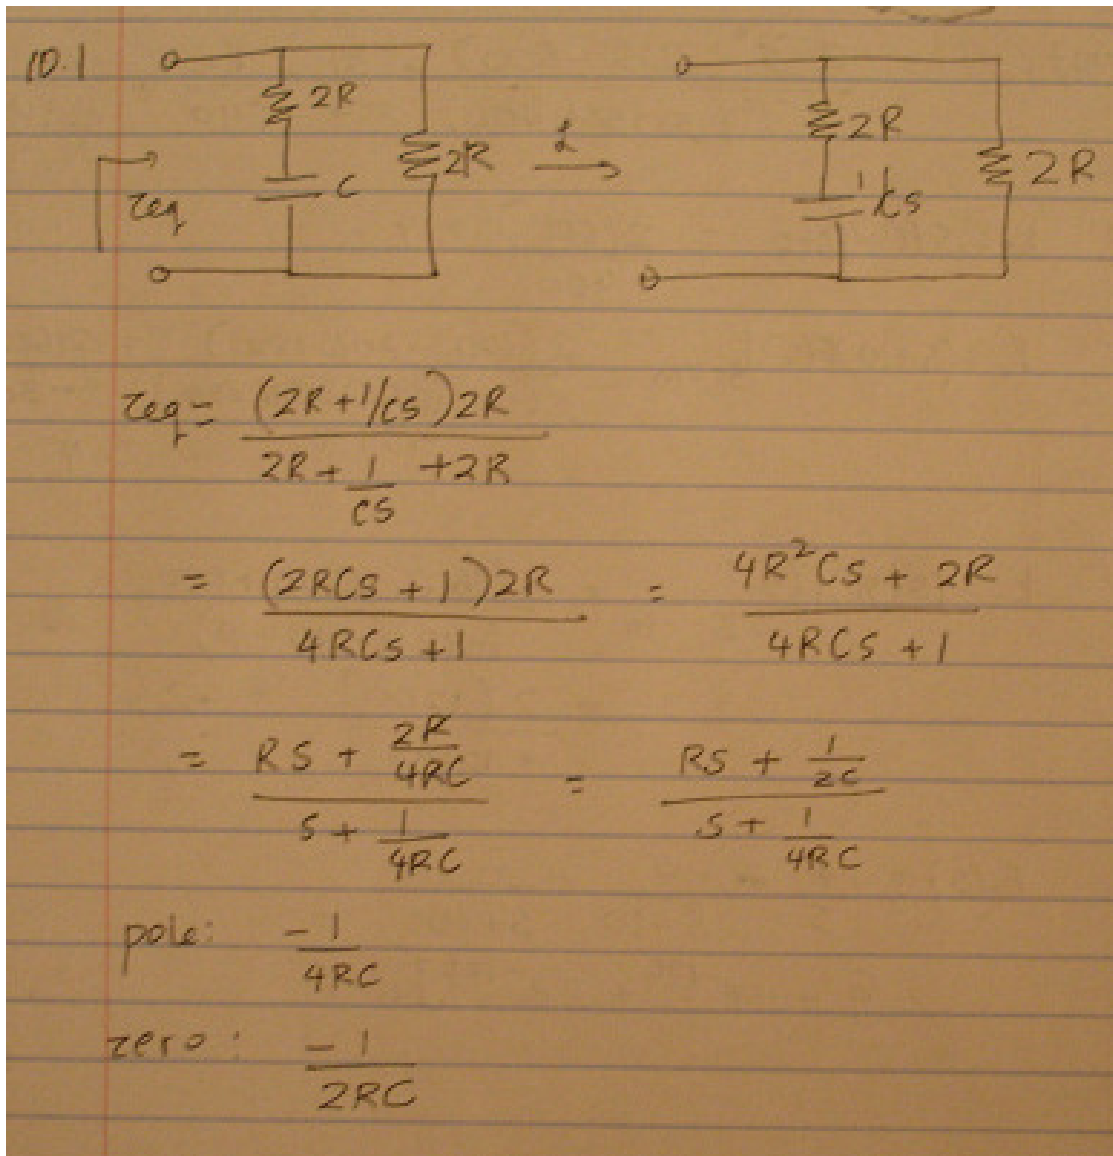 10.1
2R
2R
C
zeq
ℒ
2R
1/Cs
2R
zeq = (2R + 1/CS)2R / (2R + 1/CS + 2R)
= (2RCS + 1)2R / (4RCS + 1) = (4R²CS + 2R) / (4RCS + 1)
= (RS + 2R/4RC) / (S + 1/4RC) = (RS + 1/2C) / (S + 1/4RC)
pole: -1/4RC
zero: -1/2RC